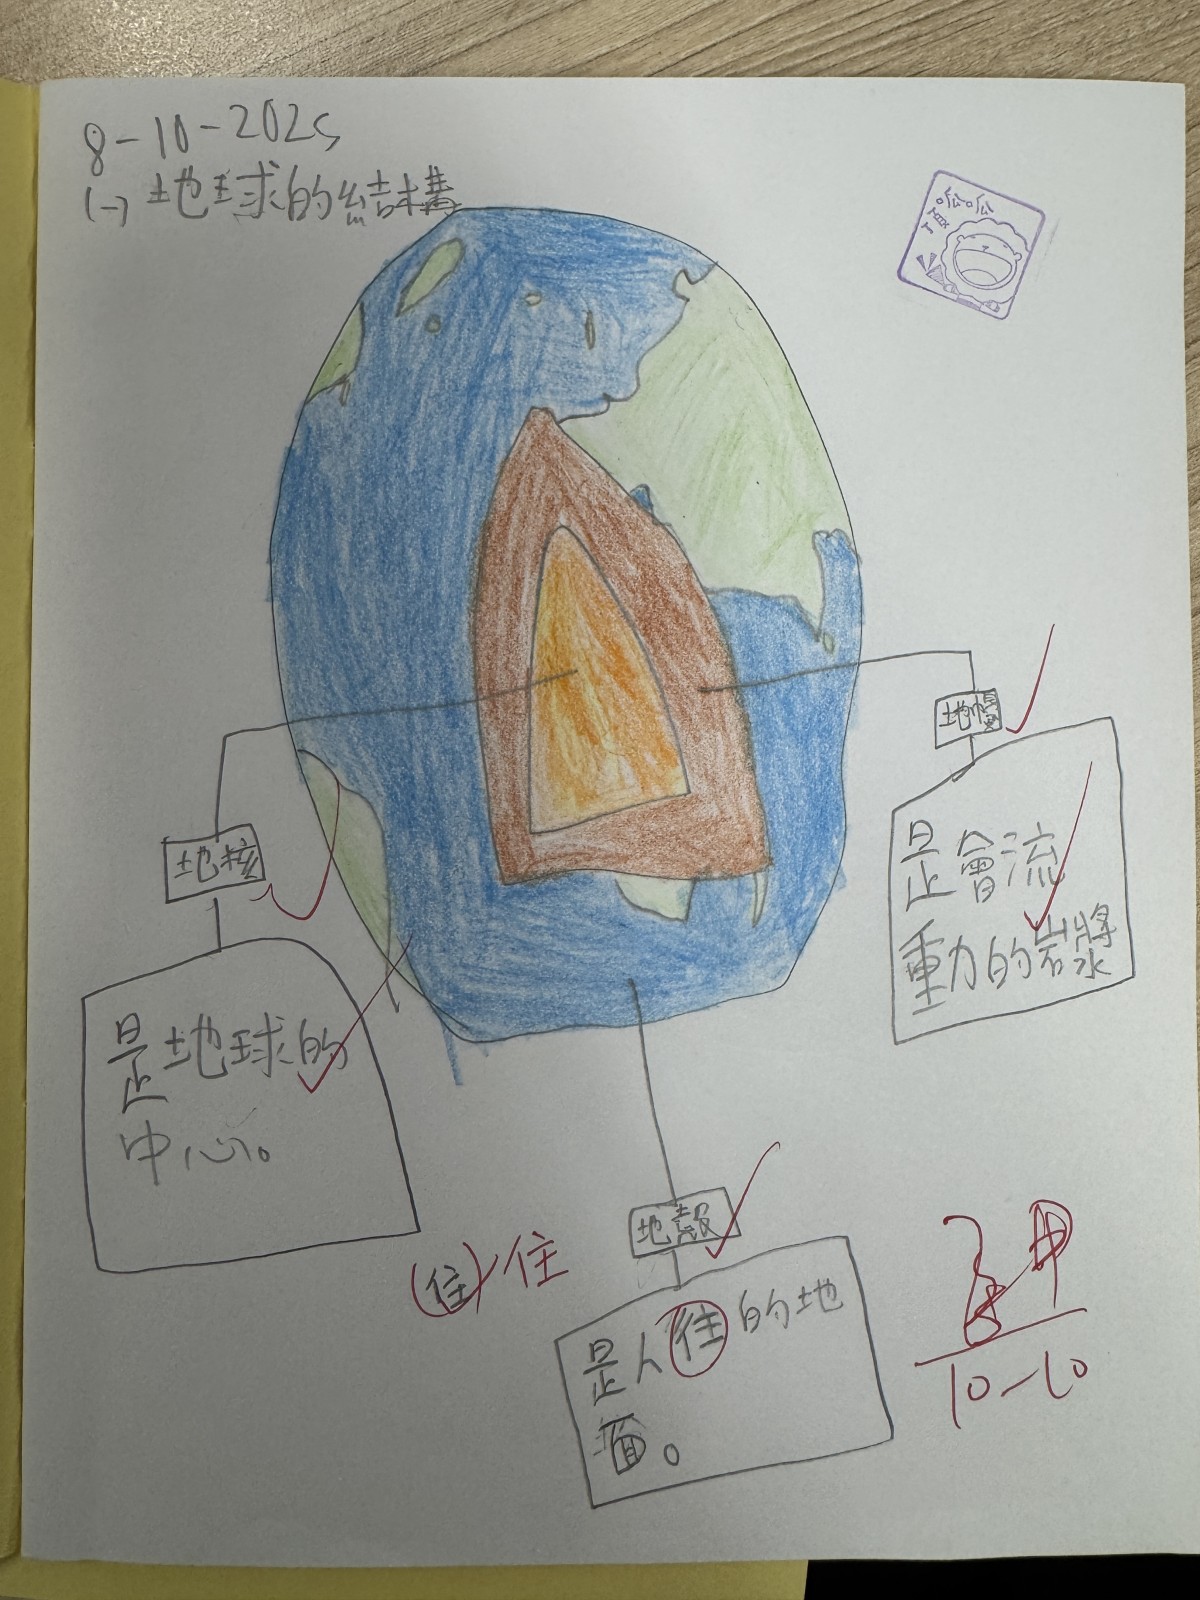 8-10-2025
(一) 地球的結構
頂呱呱
地幔
是會流
動的岩漿
地核
是地球的
中心。
(住) 住
地殼
是人往的地
面。
10-10